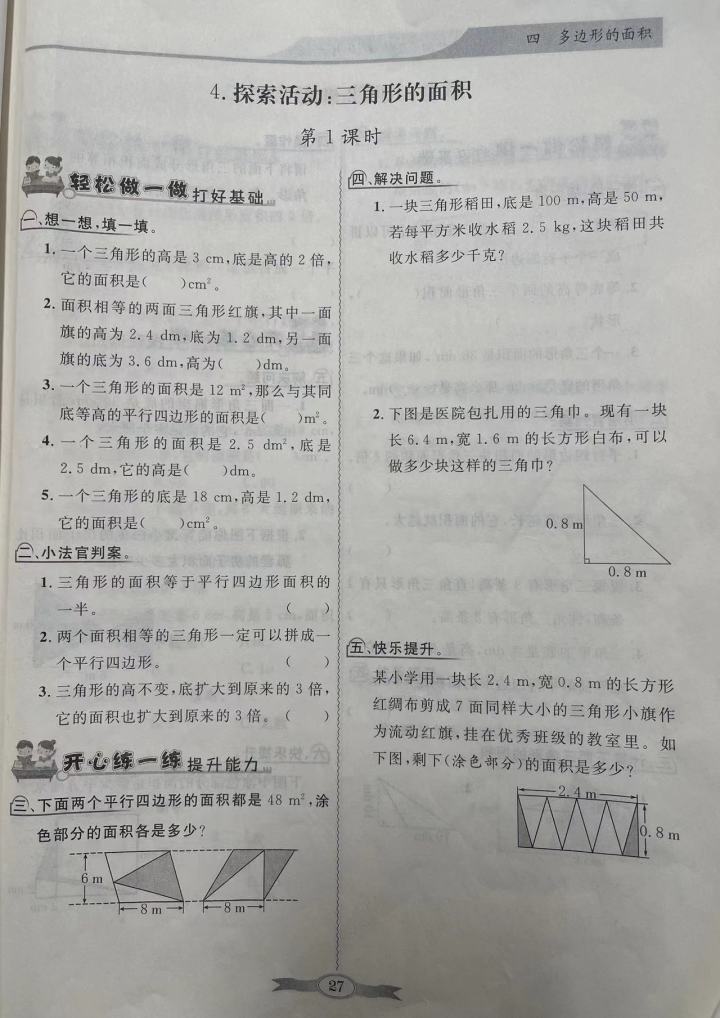 四 多边形的面积
4. 探索活动:三角形的面积
第 1 课时
轻松做一做 打好基础
一、想一想,填一填。
1. 一个三角形的高是 3 cm,底是高的 2 倍,
它的面积是( )cm²。
2. 面积相等的两面三角形红旗,其中一面
旗的高为 2.4 dm,底为 1.2 dm,另一面
旗的底为 3.6 dm,高为( )dm。
3. 一个三角形的面积是 12 m²,那么与其同
底等高的平行四边形的面积是( )m²。
4. 一个三角形的面积是 2.5 dm²,底是
2.5 dm,它的高是( )dm。
5. 一个三角形的底是 18 cm,高是 1.2 dm,
它的面积是( )cm²。
二、小法官判案。
1. 三角形的面积等于平行四边形面积的
一半。 ( )
2. 两个面积相等的三角形一定可以拼成一
个平行四边形。 ( )
3. 三角形的高不变,底扩大到原来的 3 倍,
它的面积也扩大到原来的 3 倍。( )
开心练一练 提升能力
三、下面两个平行四边形的面积都是 48 m²,涂
色部分的面积各是多少?
6 m
8 m
8 m
四、解决问题。
1. 一块三角形稻田,底是 100 m,高是 50 m,
若每平方米收水稻 2.5 kg,这块稻田共
收水稻多少千克?
2. 下图是医院包扎用的三角巾。现有一块
长 6.4 m,宽 1.6 m 的长方形白布,可以
做多少块这样的三角巾?
0.8 m
0.8 m
五、快乐提升。
某小学用一块长 2.4 m,宽 0.8 m 的长方形
红绸布剪成 7 面同样大小的三角形小旗作
为流动红旗,挂在优秀班级的教室里。如
下图,剩下(涂色部分)的面积是多少?
2.4 m
0.8 m
27